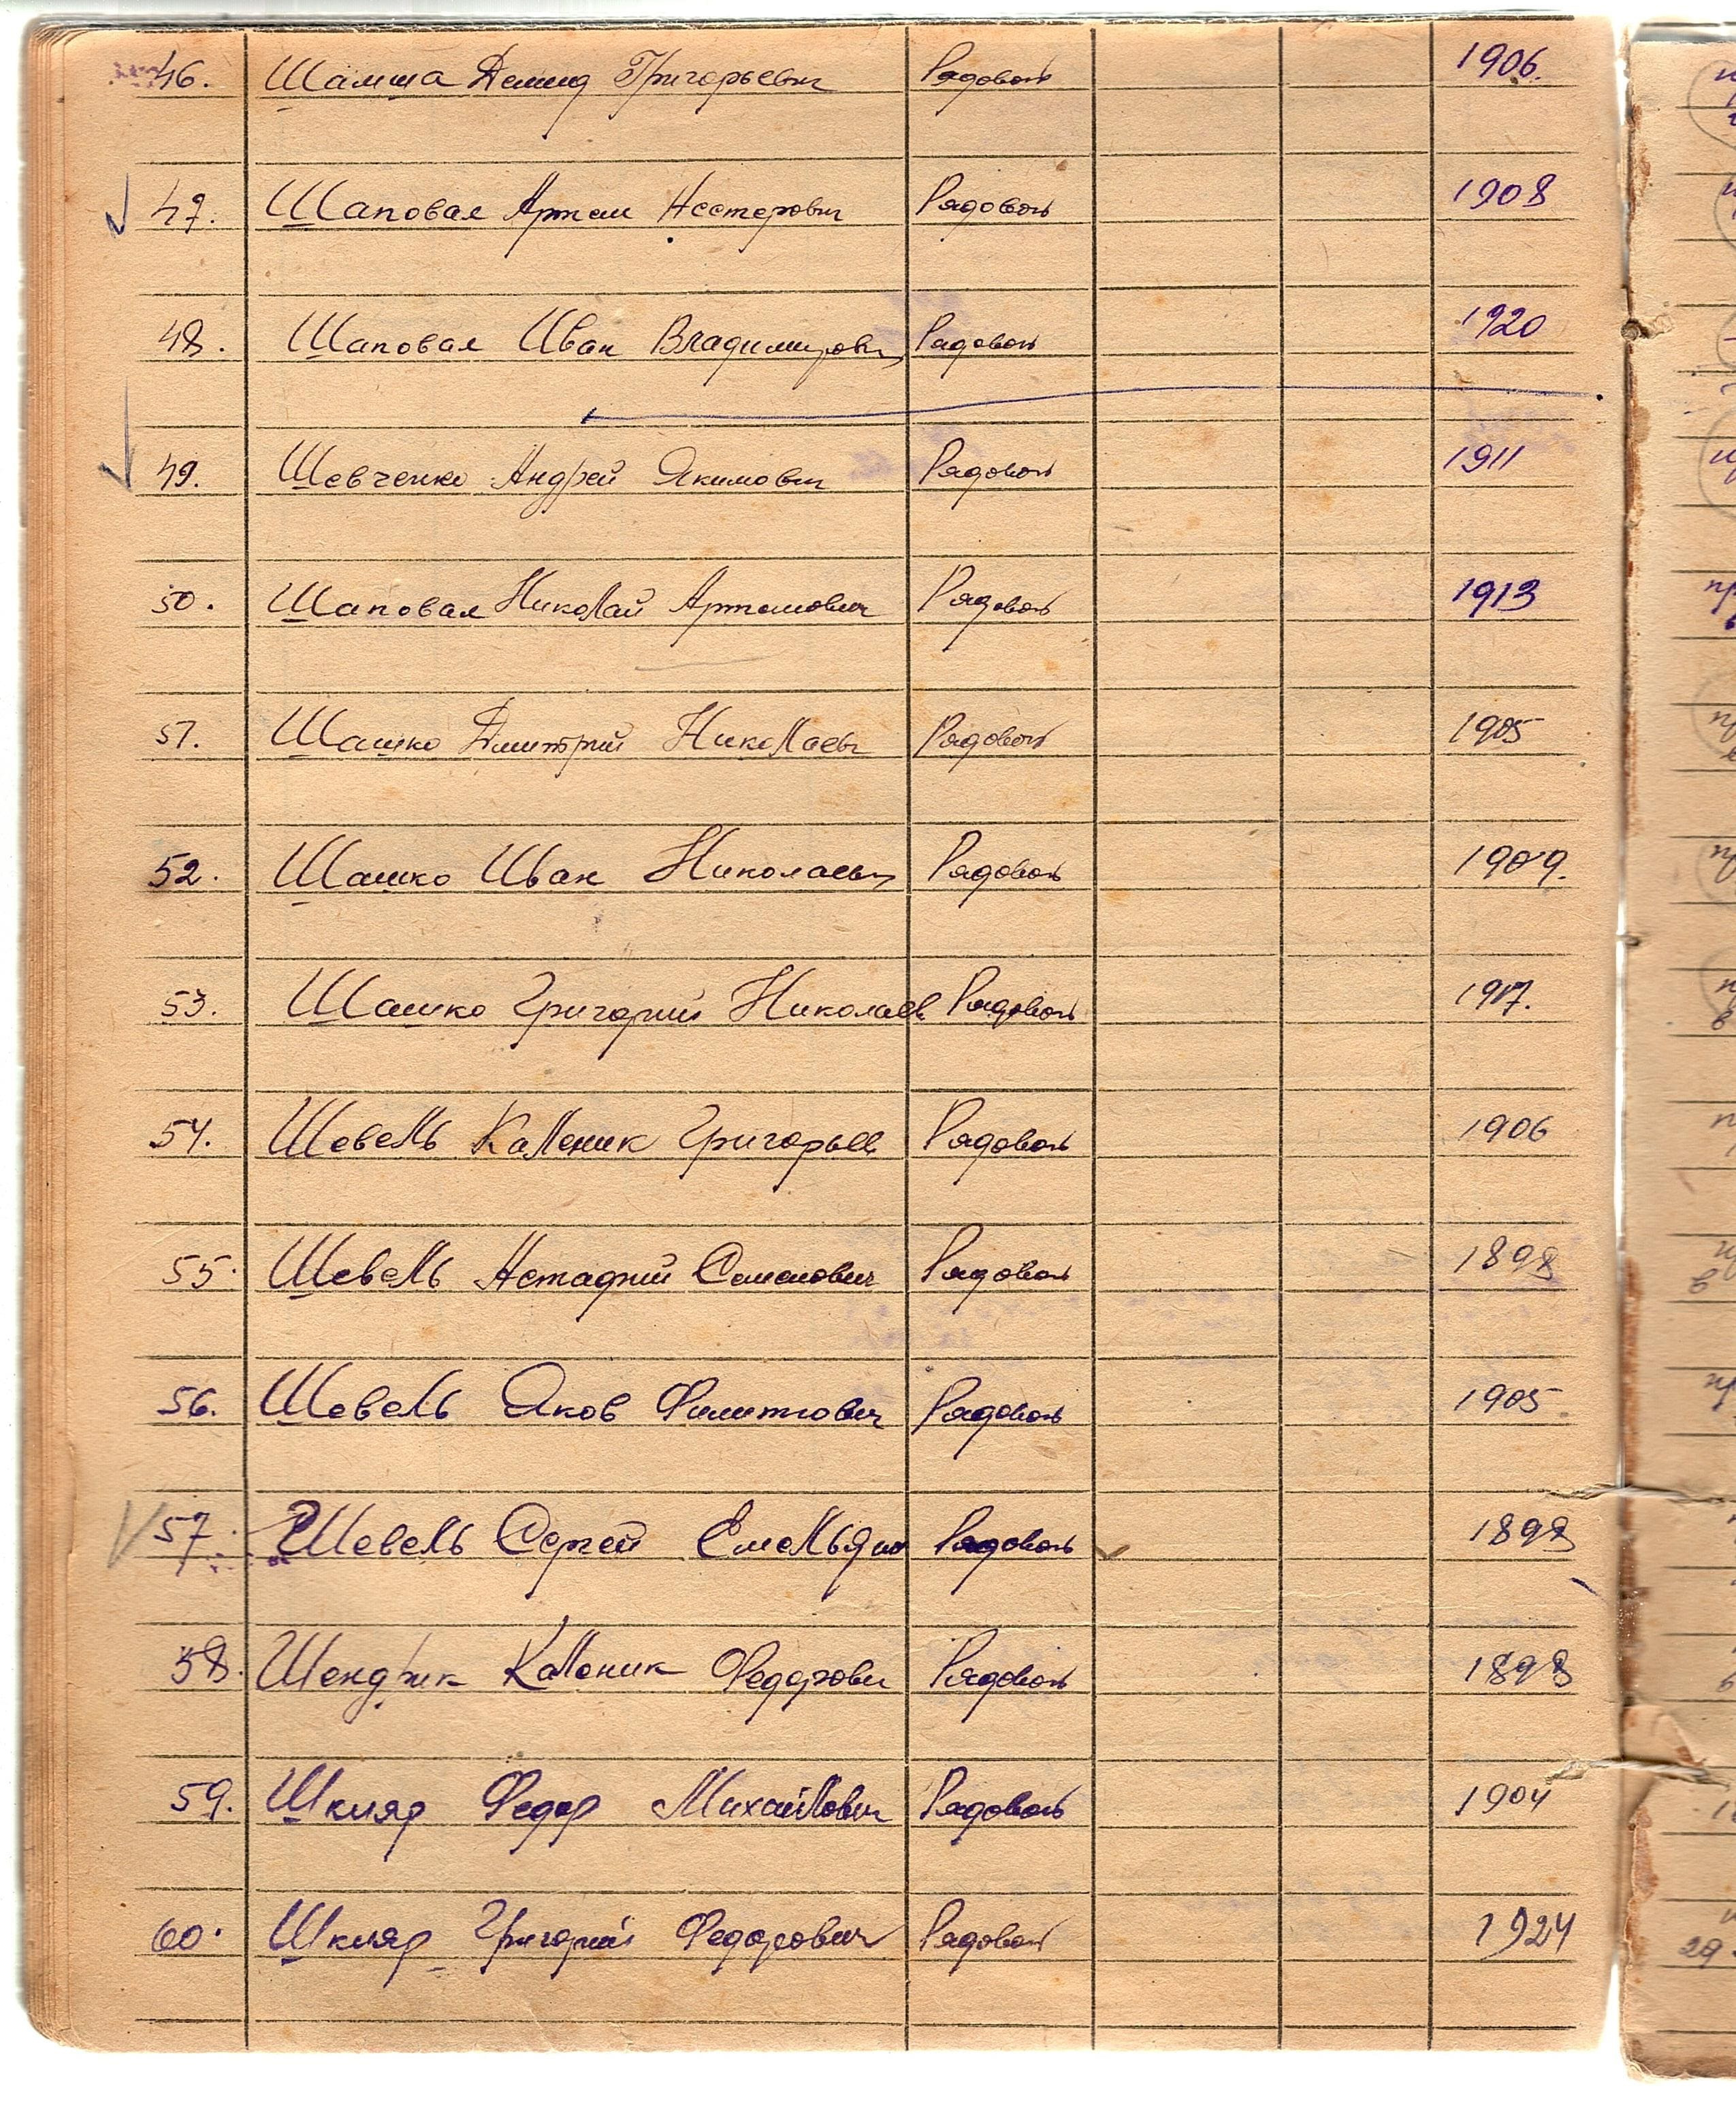 46. Шамша Демид Григорьевич Рядовой 1906.
47. Шаповал Артем Нестерович Рядовой 1908
48. Шаповал Иван Владимирович Рядовой 1920
49. Шевченко Андрей Якимович Рядовой 1911
50. Шаповал Николай Артемович Рядовой 1913
51. Шашко Дмитрий Николаевич Рядовой 1905
52. Шашко Иван Николаевич Рядовой 1909.
53. Шашко Григорий Николаев Рядовой 1917.
54. Шевель Каленик Григорьев Рядовой 1906
55. Шевель Семенович Рядовой 1898
56. Шевель Яков Филиппович Рядовой 1905
57. Шевель Сергей Емельяно Рядовой 1898
58. Шендрик Каленик Федорович Рядовой 1898
59. Шкляр Федор Михайлович Рядовой 1904
60. Шкляр Григорий Федорович Рядовой 1924